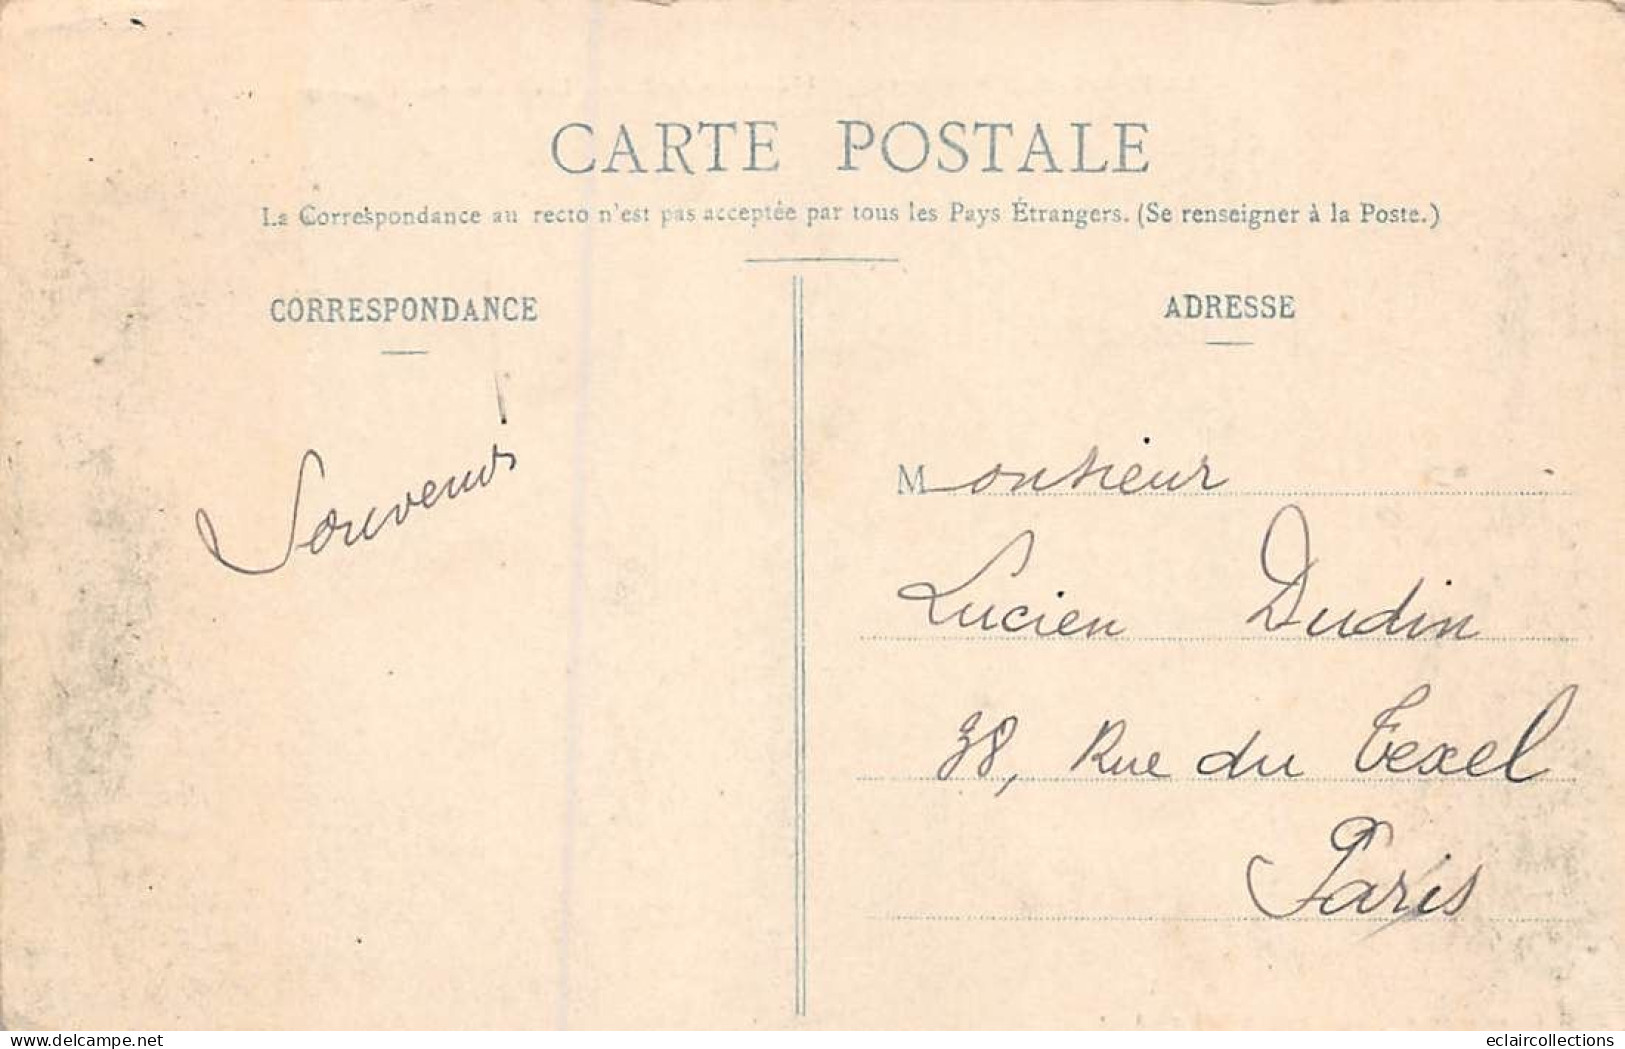 CARTE POSTALE
La Correspondance au recto n'est pas acceptée par tous les Pays Étrangers. (Se renseigner à la Poste.)
CORRESPONDANCE
Souvenir
ADRESSE
Monsieur
Lucien Dudin
38, Rue du Texel
Paris
delcampe.net
eclaircollections